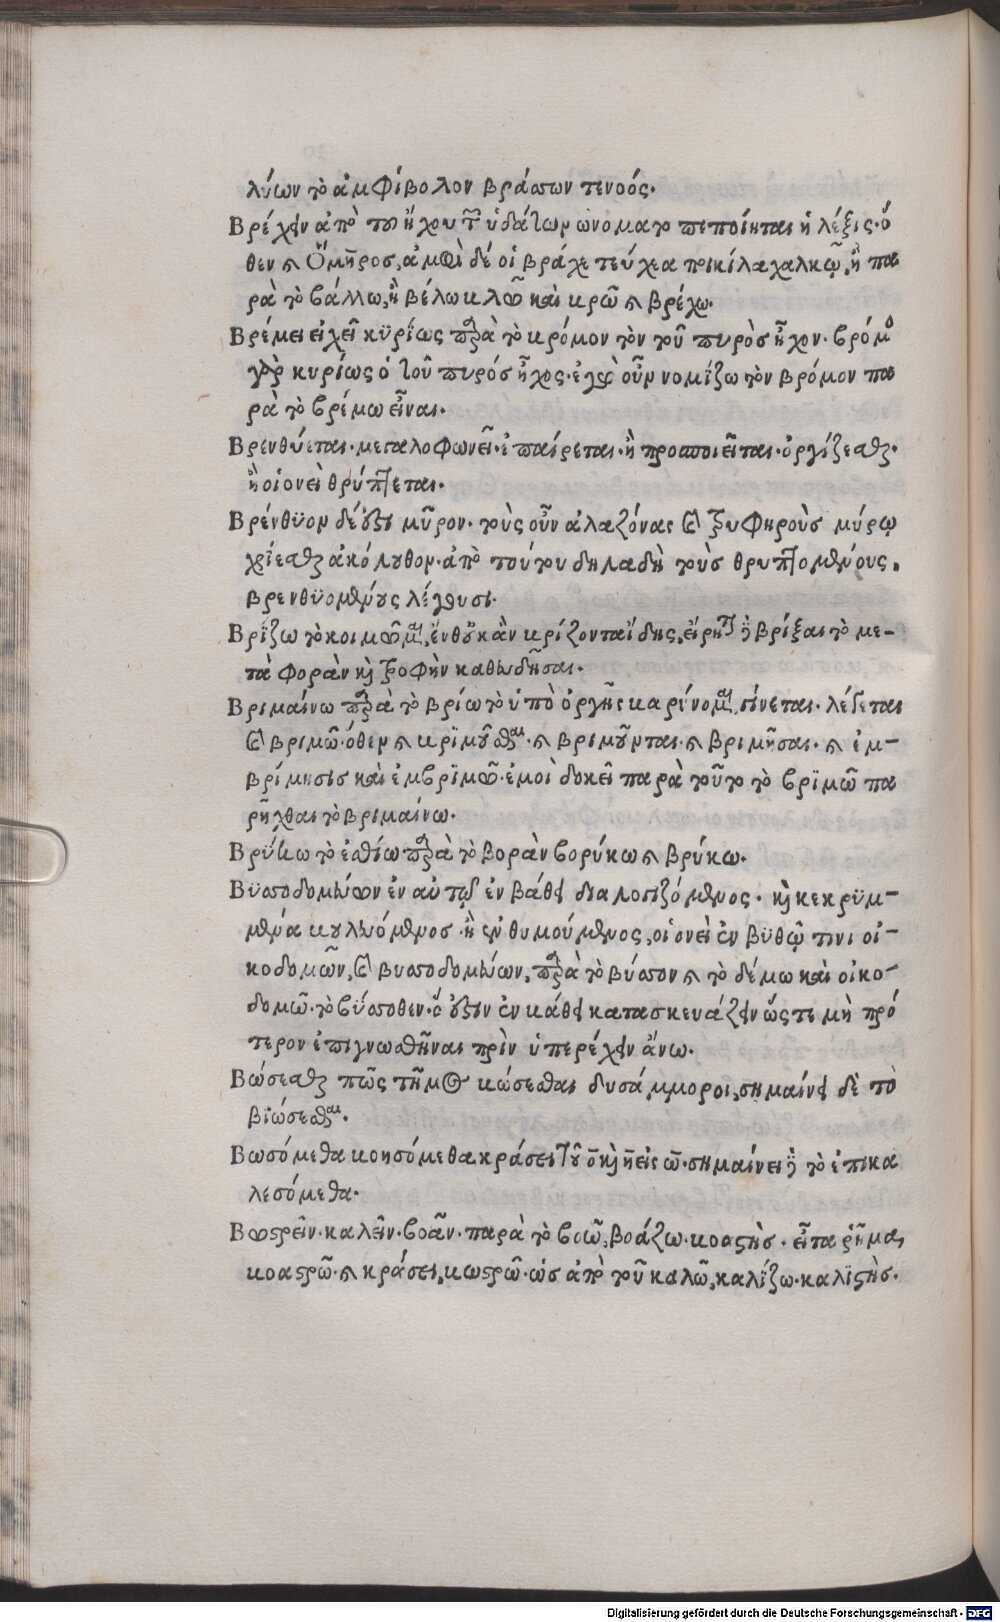 λύων τὸ ἀμφίβολον βράσων τενοός.
Βρέχειν ἀπὸ τοῦ ἤχου τῶν ὑδάτων ὠνοματοπεποίηται ἡ λέξις. ὅ
θεν καὶ Ὅμηρος, ἀμφὶ δέ οἱ βράχε τεύχεα ποικίλα χαλκῷ, ἢ πα
ρὰ τὸ βάλλω, ἢ βέλω βλῶ καὶ βρῶ καὶ βρέχω.
Βρέμει ἠχεῖ κϋρίως παρὰ τὸ βρόμον τὸν τοῦ πυρὸς ἦχον. βρόμος
γὰρ κυρίως ὁ τοῦ πυρός ἦχος. ἐγὼ οὖν νομίζω τὸν βρόμον πα
ρὰ τὸ βρέμω εἶναι.
Βρενθύεται. μεγαλοφωνεῖ. ἐπαίρεται. ἢ προσποιεῖται. ὀργίζεσθαι.
ἢ οἱονεὶ θρύπτεται.
Βρένθϋον δέ ἐστι μῦρον. τοὺς οὖν ἀλαζόνας καὶ τρυφηροὺς μύρῳ
χρίεσθαι ἀκόλουθον. ἀπὸ τούτου δηλαδὴ τοὺς θρυπτομένους.
βρενθϋομένους λέγουσι.
Βρίζω τὸ κοιμῶμαι, ἔνθ' οὐκ ἂν βρίζοντα ἴδης, εἴρηται δὲ βρίξαι τὸ με-
τὰ φορὰν καὶ τροφὴν καθευδῆσαι.
Βριμαίνω παρὰ τὸ βρίω τὸ ὑπὸ ὀργῆς βαρύνομαι, γίνεται. λέγεται
καὶ βριμῶ. ὅθεν καὶ βριμοῦσθαι. καὶ βριμοῦνται. καὶ βριμῆσαι. καὶ ἐμ-
βρίμησις καὶ ἐμβριμῶ. ἐμοὶ δοκεῖ παρὰ τοῦτο τὸ βριμῶ πα
ρῆχθαι τὸ βριμαίνω.
Βρύκω τὸ ἐσθίω παρὰ τὸ βορὰν βορύκω καὶ βρύκω.
Βϋσσοδομεύων ἐν αὐτῷ ἐν βάθει διαλογιζόμενος. καὶ κεκρϋμ-
μένα βουλευόμενος. ἢ ἐνθυμούμενος, οἱονεὶ ἐν βϋθῷ τινι οἰ-
κοδομῶν, καὶ βυσσοδομεύων, παρὰ τὸ βύσσον καὶ τὸ δέμω καὶ οἰκο-
δομῶ. τὸ βύσσοθεν. ὅ ἐστιν ἐν βάθει κατασκευάζειν ὥστε μὴ πρό
τερον ἐπιγνωσθῆναι πρὶν ὑπερέχειν ἄνω.
Βώσεσθαι πῶς τῆμος βώσεσθαι δυσάμμοροι, σημαίνει δὲ τὸ
βϊώσεσθαι.
Βωσόμεθα βοησόμεθα κράσει τοῦ ο καὶ η εἰς ω. σημαίνει δὲ τὸ ἐπικα
λεσόμεθα.
Βωστρεῖν. καλεῖν. βοᾶν. παρὰ τὸ βοῶ, βοάζω. βοαστὴς. εἶτα ῥῆμα,
βοαστρῶ. καὶ κράσει, βωστρῶ. ὡς ἀπὸ τοῦ καλῶ, καλίζω. καλϊστὴς.
Digitalisierung gefördert durch die Deutsche Forschungsgemeinschaft - DFG